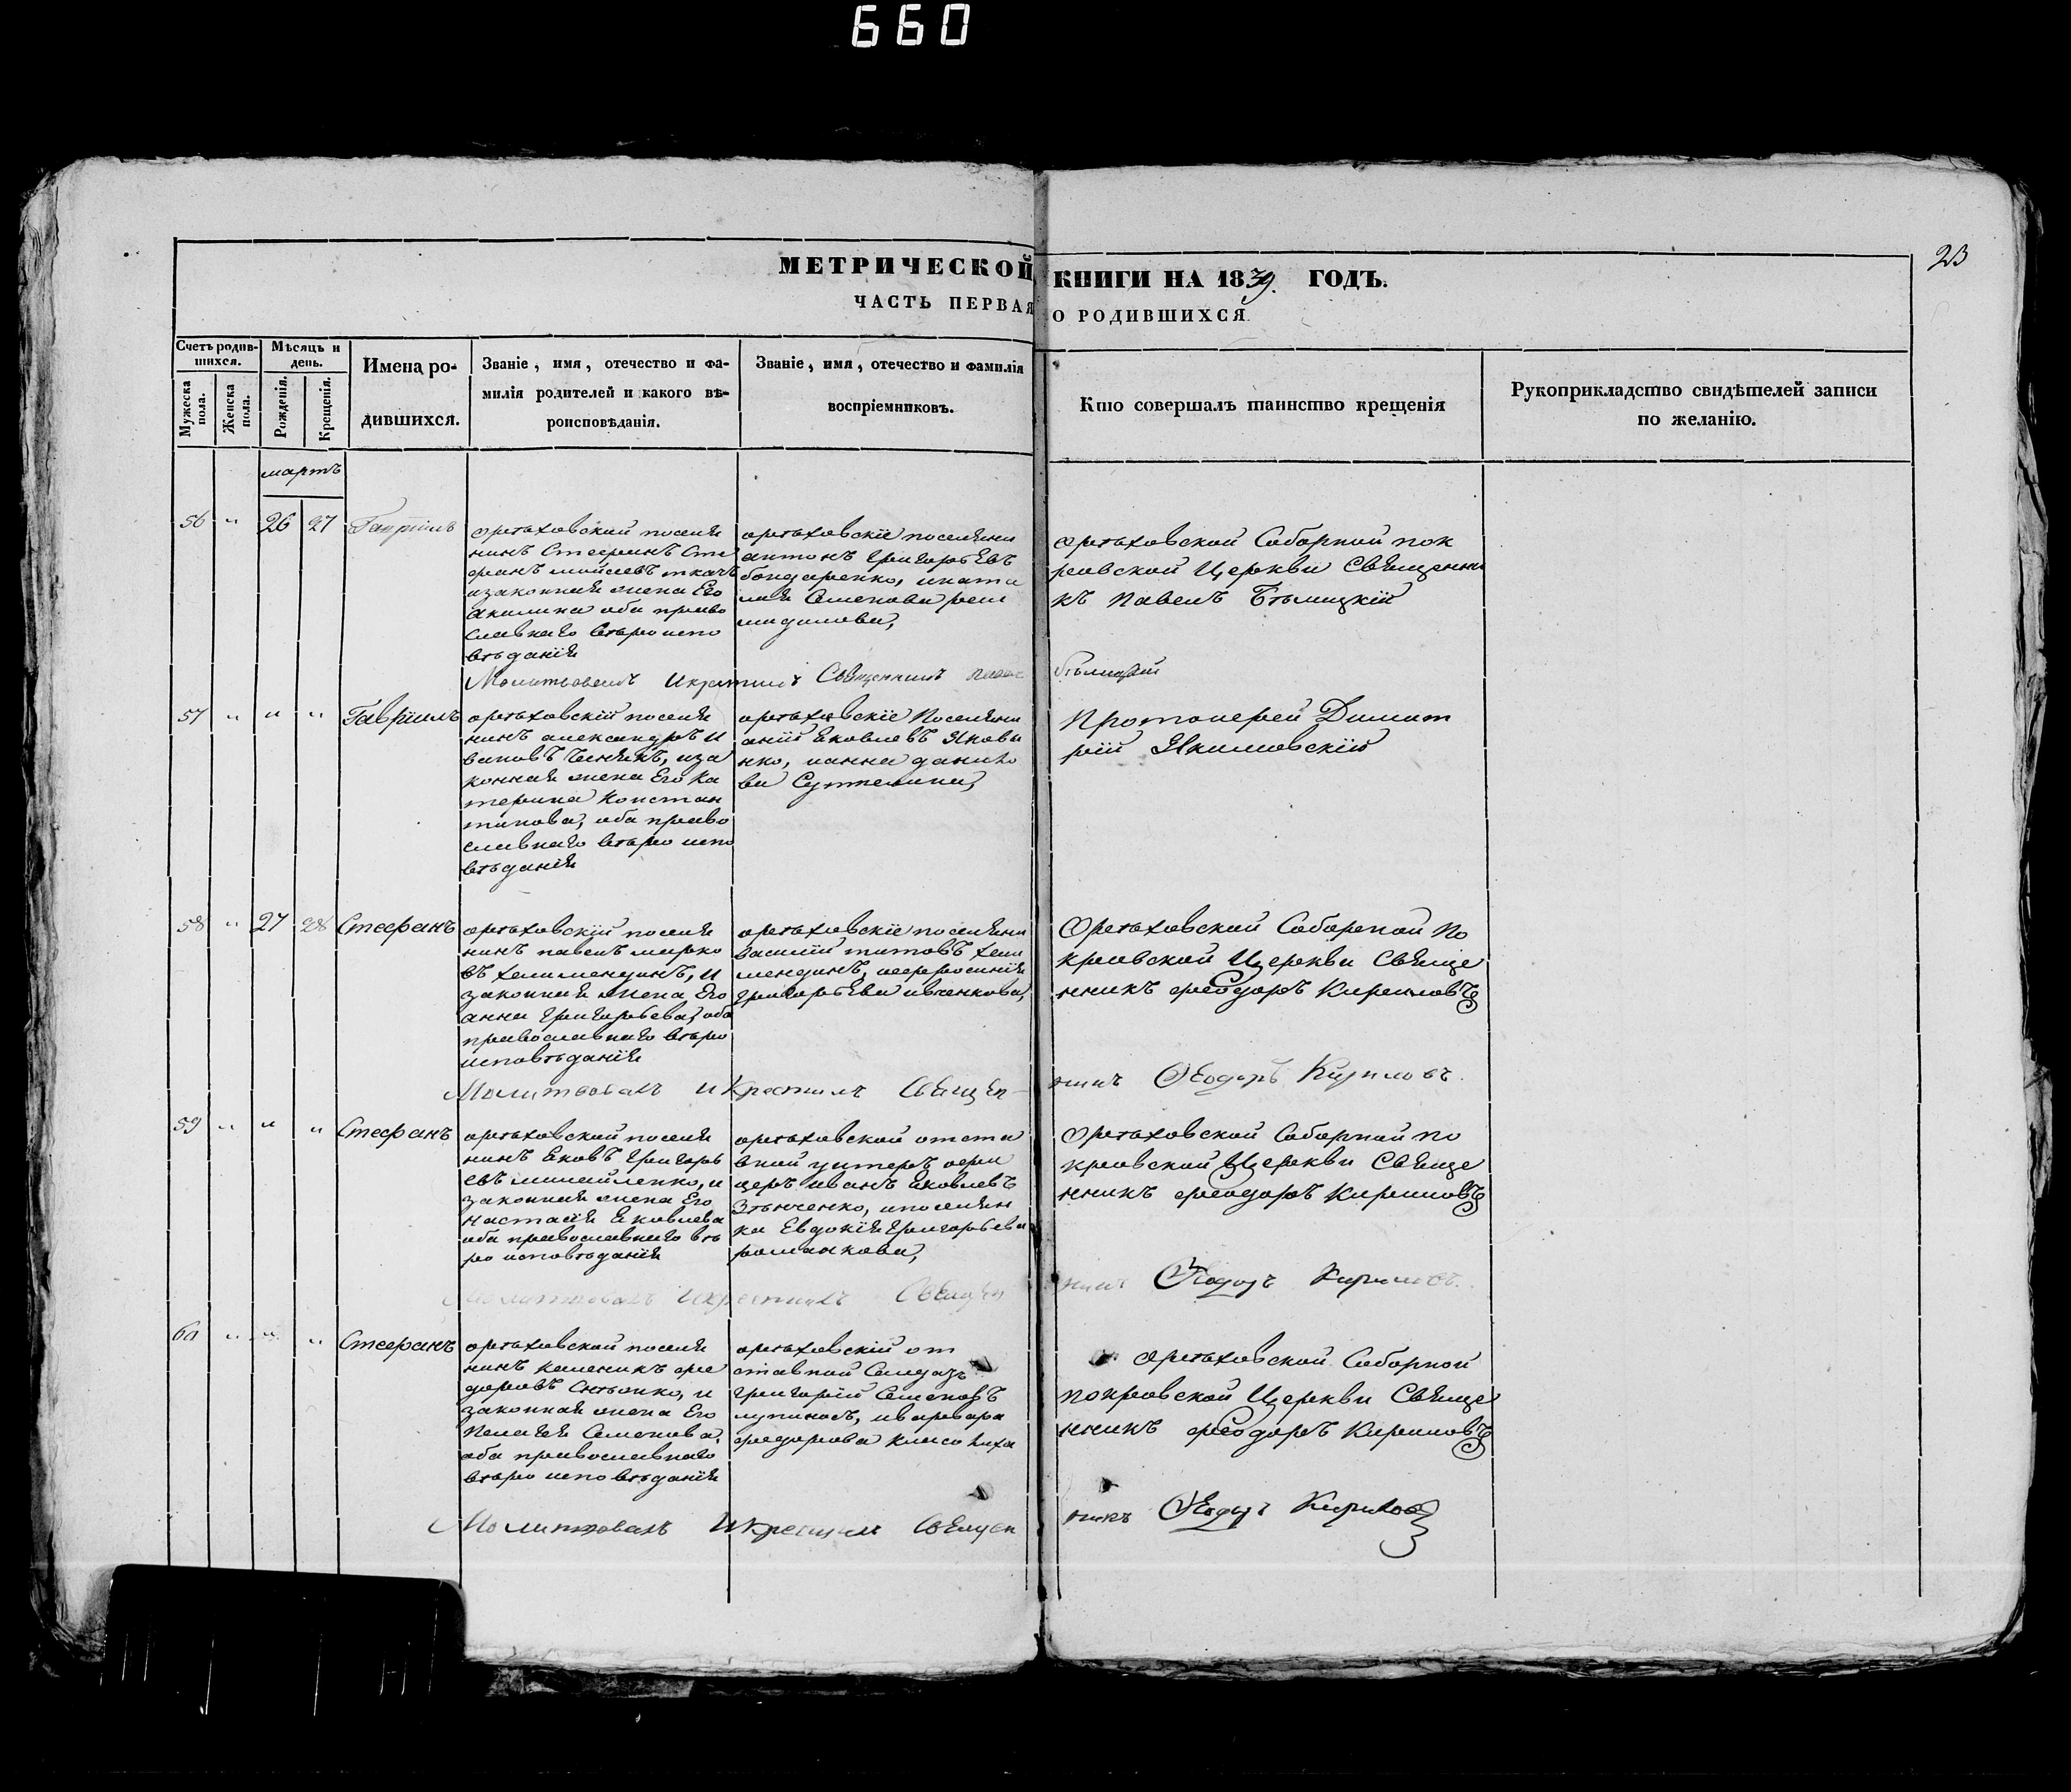 660
23
МЕТРИЧЕСКОЙ КНИГИ НА 1839. ГОДЪ.
ЧАСТЬ ПЕРВАЯ О РОДИВШИХСЯ
Счетъ родив-
шихся.
Мужеска пола.
Женска пола.
Мѣсяцъ и
день.
Рожденія.
Крещенія.
Имена ро-
дившихся.
Званіе, имя, отечество и фа-
милія родителей и какого вѣ-
роисповѣданія.
Званіе, имя, отечество и фамилія
воспріемниковъ.
Кто совершалъ таинство крещенія
Рукоприкладство свидѣтелей записи
по желанію.
мартъ
56 " 26 27 Гаврїилъ
орѣховскїй поселя
нинъ Стефанъ Сте
фанъ мойсеевъ ткачъ
изаконная жена Его
акилина оба право
славнаго вѣро испо
вѣданїя
орѣховскїе поселяни
антонъ григорьЕвъ
бондаренко, ината
лия Семенова
орѣховской Соборной пок
ровской Церкви Священни
къ павелъ Бѣлицкїй
Молитвовалъ Икрестилъ Священникъ павелъ бѣлицкїй
57 " " " Гаврїилъ
орѣховскїй поселя
нинъ александръ и
вановъ иза
конная жена Его ка
терина констан
тинова, оба право
славнаго вѣро испо
вѣданїя
орѣховскїе Поселяни
Яковлевъ Якове
нко, ианна данило
ва
Протоиерей Димит
рїй Якимовскїй
58 " 27 28 Стефанъ
орѣховскїй поселя
нинъ павелъ марко
въ и
законная жена Его
анна григорьева, оба
православнаго вѣро
исповѣданїя
орѣховскїе поселяни
василїй титовъ
иефросинїя
григорьЕва ивченкова,
Орѣховской Соборной По
кровской Церкви Свяще
нникъ феодоръ Кириловъ
Молитвовалъ иКрестилъ Священ-
никъ Феодоръ Кириловъ
59 " " " Стефанъ
орѣховской поселя
нинъ Яковъ григорь
евъ михайленко, и
законная жена Его
настасїя Яковлева
оба православнаго вѣ
ро исповѣданїя
орѣховской отста
вной унтеръ офи
церъ иванъ Яковлевъ
ипоселян
ка Евдокїя григорьева
романкова,
Орѣховской Соборной по
кровской Церкви Свяще
нникъ феодоръ Кириловъ
Молитвовалъ икрестилъ Священ
никъ Феодоръ Кириловъ.
60 " " " Стефанъ
орѣховской поселя
нинъ калиникъ фео
доровъ и
законная жена Его
Пелагея Семенова,
оба православнаго
вѣро исповѣданїя
орѣховскїй от
ставной Солдатъ
григорїй Семеновъ
иварвара
федорова
орѣховской Соборной
покровской Церкви Свяще
нникъ феодоръ Кириловъ
Молитвовалъ Икрестилъ Священ
никъ Феодоръ Кириловъ